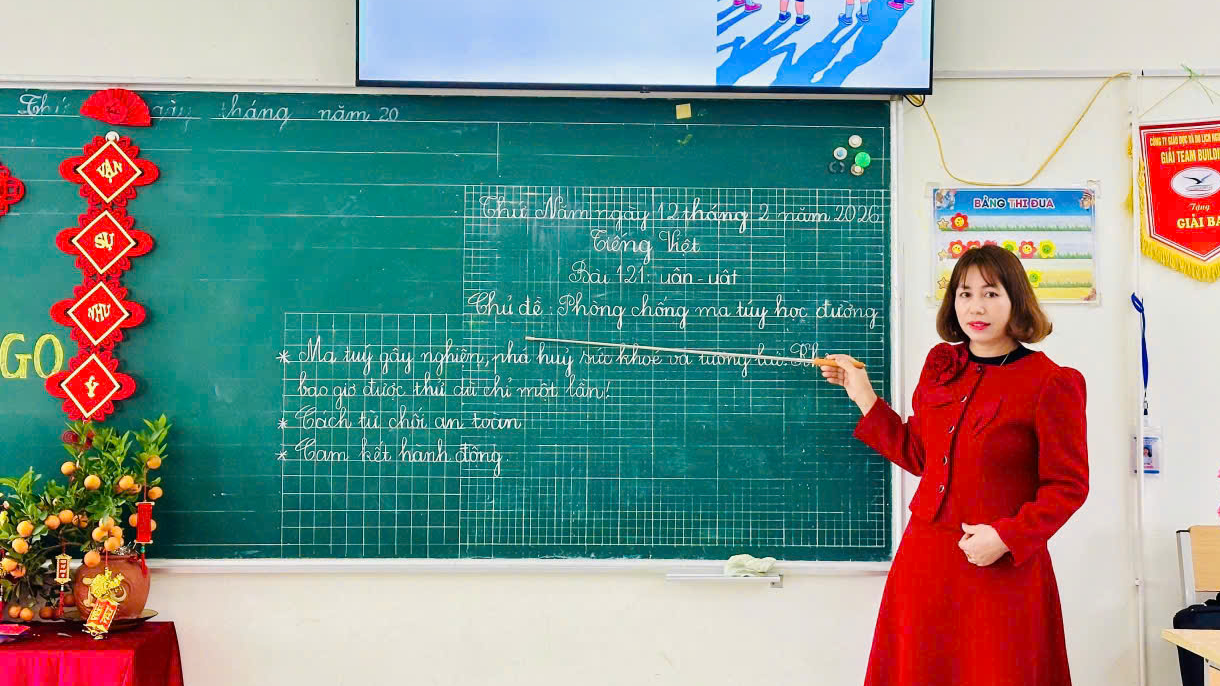 Thứ ngày tháng năm 20
VẠN
SỰ
NHƯ
Ý
GO
Thứ Năm ngày 12 tháng 2 năm 2026
Tiếng Việt
Bài 121: uân - uât
Chủ đề: Phòng chống ma túy học đường
* Ma tuý gây nghiện, phá huỷ sức khoẻ và tương lai.
bao giờ được thử dù chỉ một lần!
* Cách từ chối an toàn
* Cam kết hành động
BẢNG THI ĐUA
CÔNG TY GIÁO DỤC VÀ DU LỊCH
GIẢI TEAM BUILDIN
Tặng
GIẢI BA